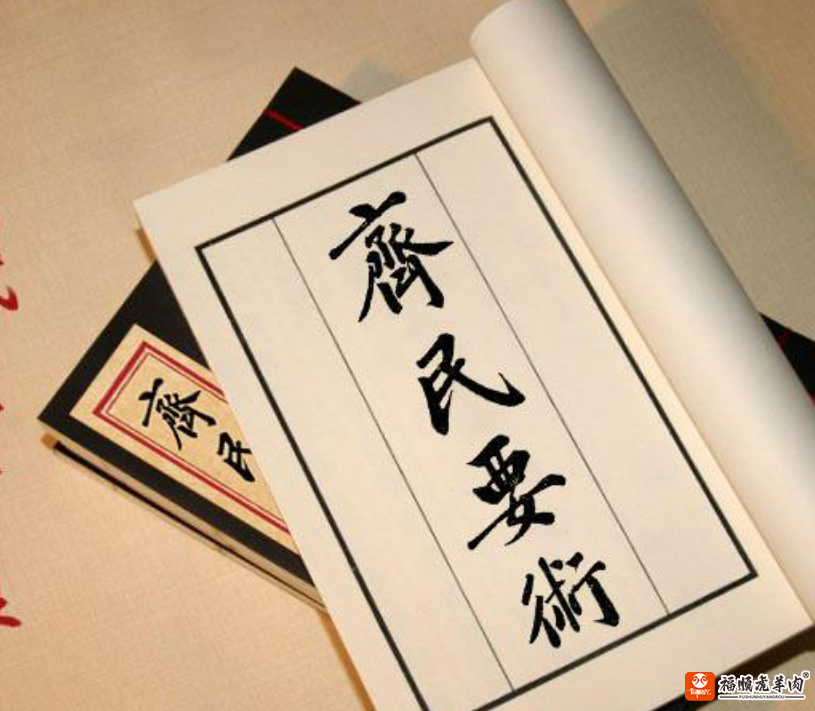 齊民要術
齊民
福順龙羊肉®
FUSHUNHUYANGROU